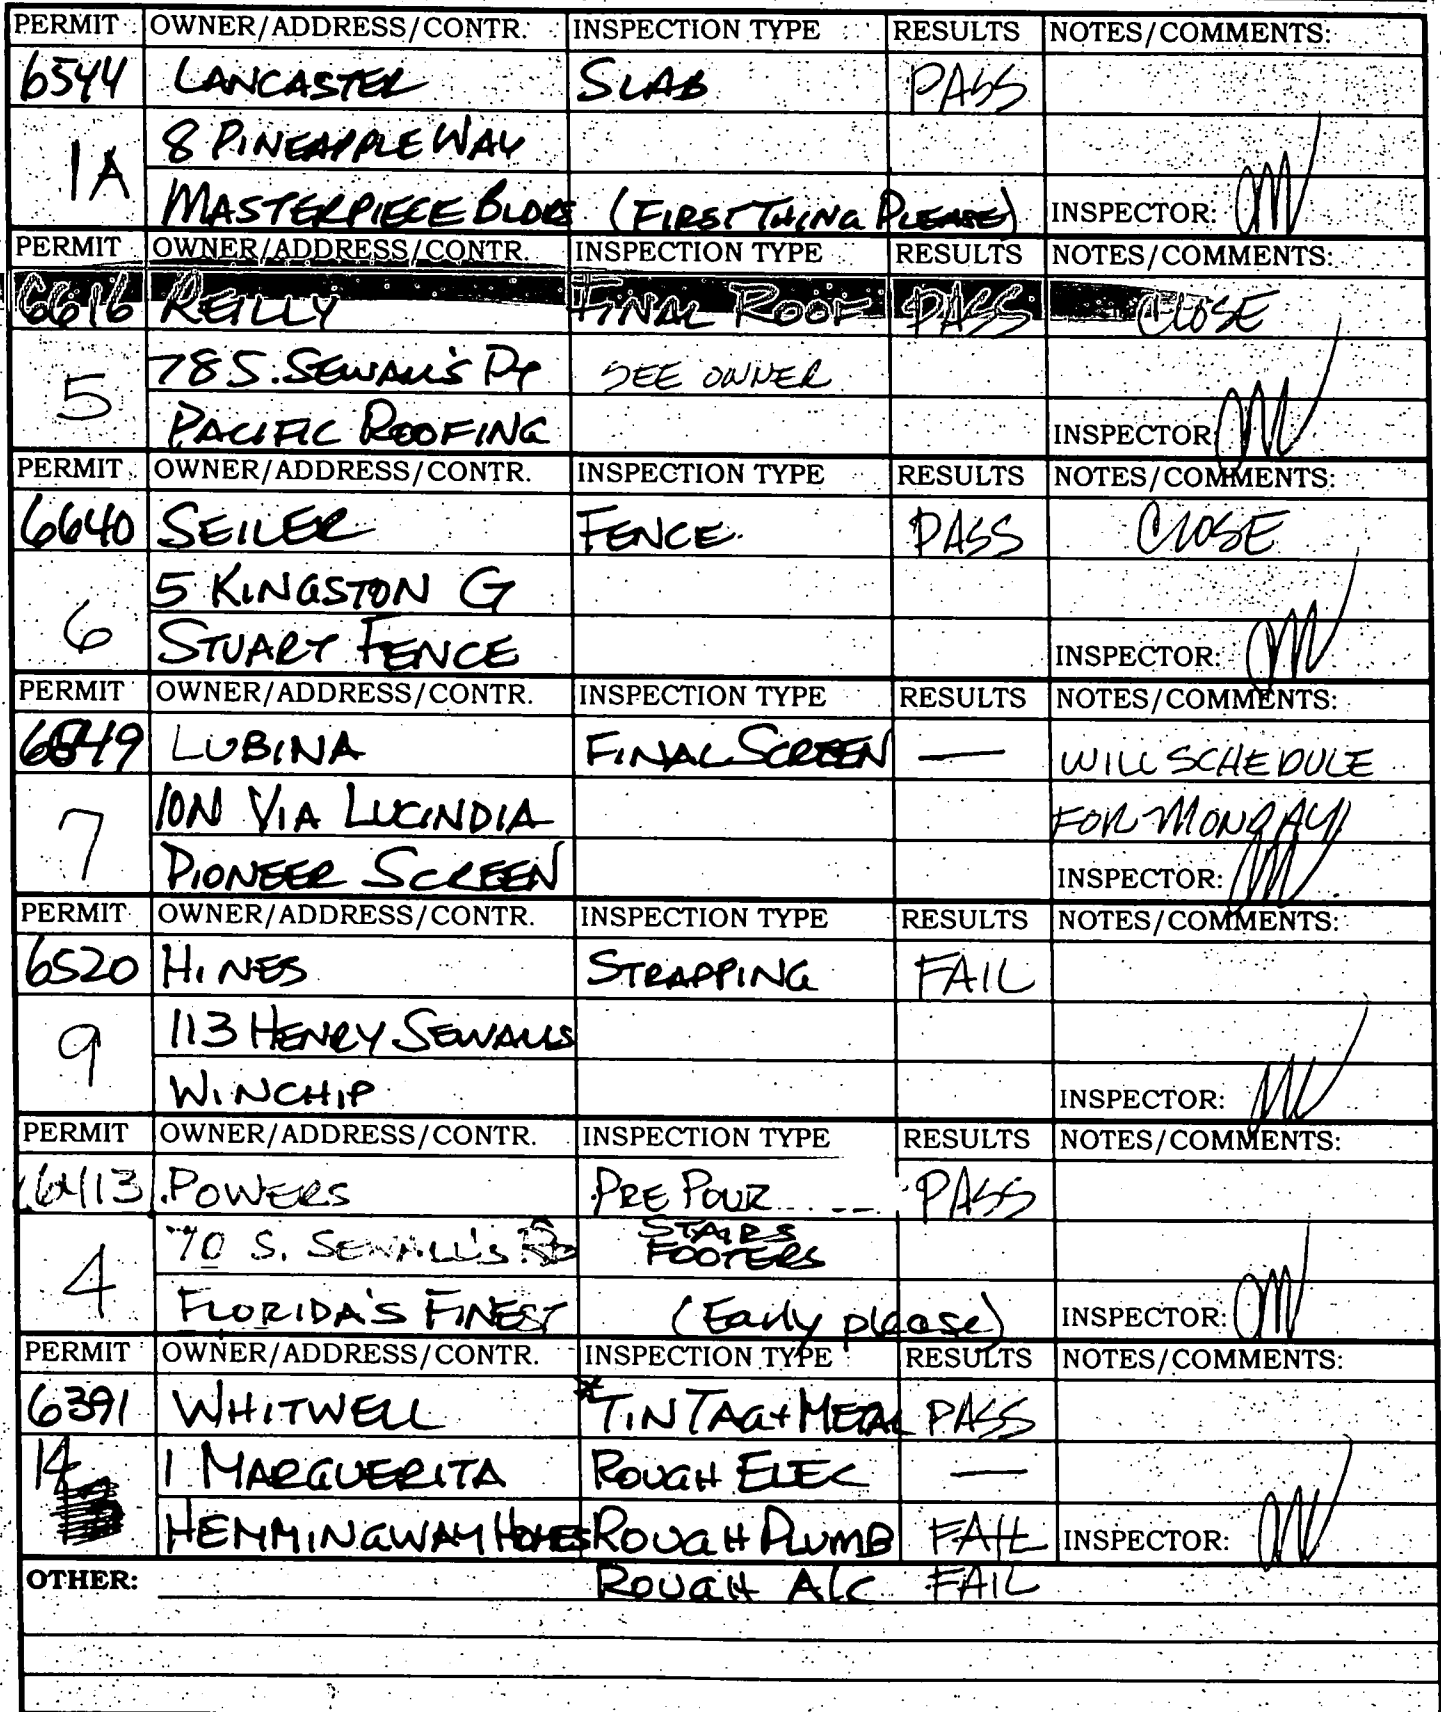 PERMIT OWNER/ADDRESS/CONTR. INSPECTION TYPE RESULTS NOTES/COMMENTS:
6544 LANCASTER SLAB PASS
1A 8 PINEAPPLE WAY
MASTERPIECE BLDRS (FIRST THING PLEASE) INSPECTOR:
PERMIT OWNER/ADDRESS/CONTR. INSPECTION TYPE RESULTS NOTES/COMMENTS:
6616 REILLY FINAL ROOF PASS CLOSE
5 78 S. SEWALL'S PT SEE OWNER
PACIFIC ROOFING INSPECTOR:
PERMIT OWNER/ADDRESS/CONTR. INSPECTION TYPE RESULTS NOTES/COMMENTS:
6640 SEILER FENCE PASS CLOSE
6 5 KINGSTON CT
STUART FENCE INSPECTOR:
PERMIT OWNER/ADDRESS/CONTR. INSPECTION TYPE RESULTS NOTES/COMMENTS:
LUBINA FINAL SCREEN — WILL SCHEDULE
7 10N VIA LUCINDIA FOR MONDAY
PIONEER SCREEN INSPECTOR:
PERMIT OWNER/ADDRESS/CONTR. INSPECTION TYPE RESULTS NOTES/COMMENTS:
6520 HINES STRAPPING FAIL
9 113 HENRY SEWALLS
WINCHIP INSPECTOR:
PERMIT OWNER/ADDRESS/CONTR. INSPECTION TYPE RESULTS NOTES/COMMENTS:
6413 POWERS PRE POUR PASS
4 70 S. SEWALL'S RD STAIRS
FOOTERS
FLORIDA'S FINEST (Early please) INSPECTOR:
PERMIT OWNER/ADDRESS/CONTR. INSPECTION TYPE RESULTS NOTES/COMMENTS:
6391 WHITWELL *TIN TAG + METAL PASS
14 1 MARGUERITA ROUGH ELEC —
HEMMINGWAY HOMES ROUGH PLUMB FAIL INSPECTOR:
OTHER: ROUGH A/C FAIL